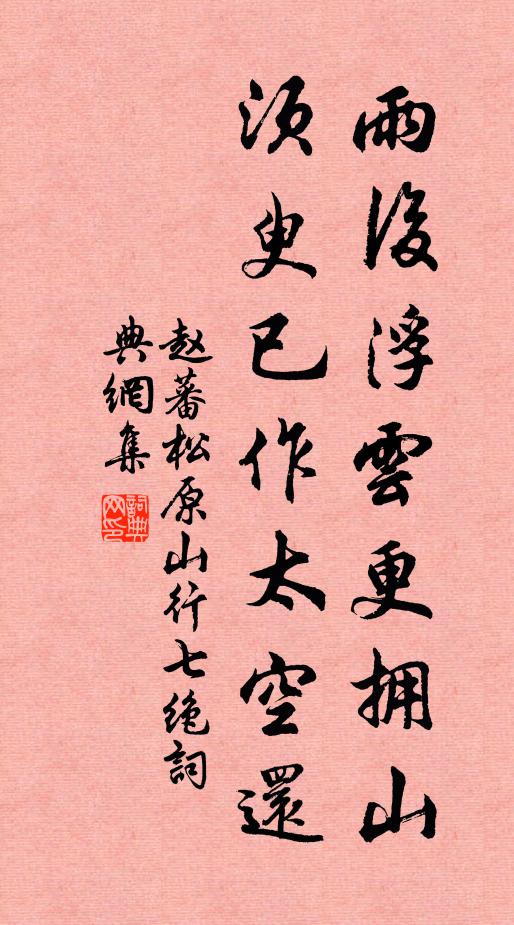 雨後浮雲更拥山
須臾已作太空還
赵蕃松原山行七绝詞
典網集
詞典
网印